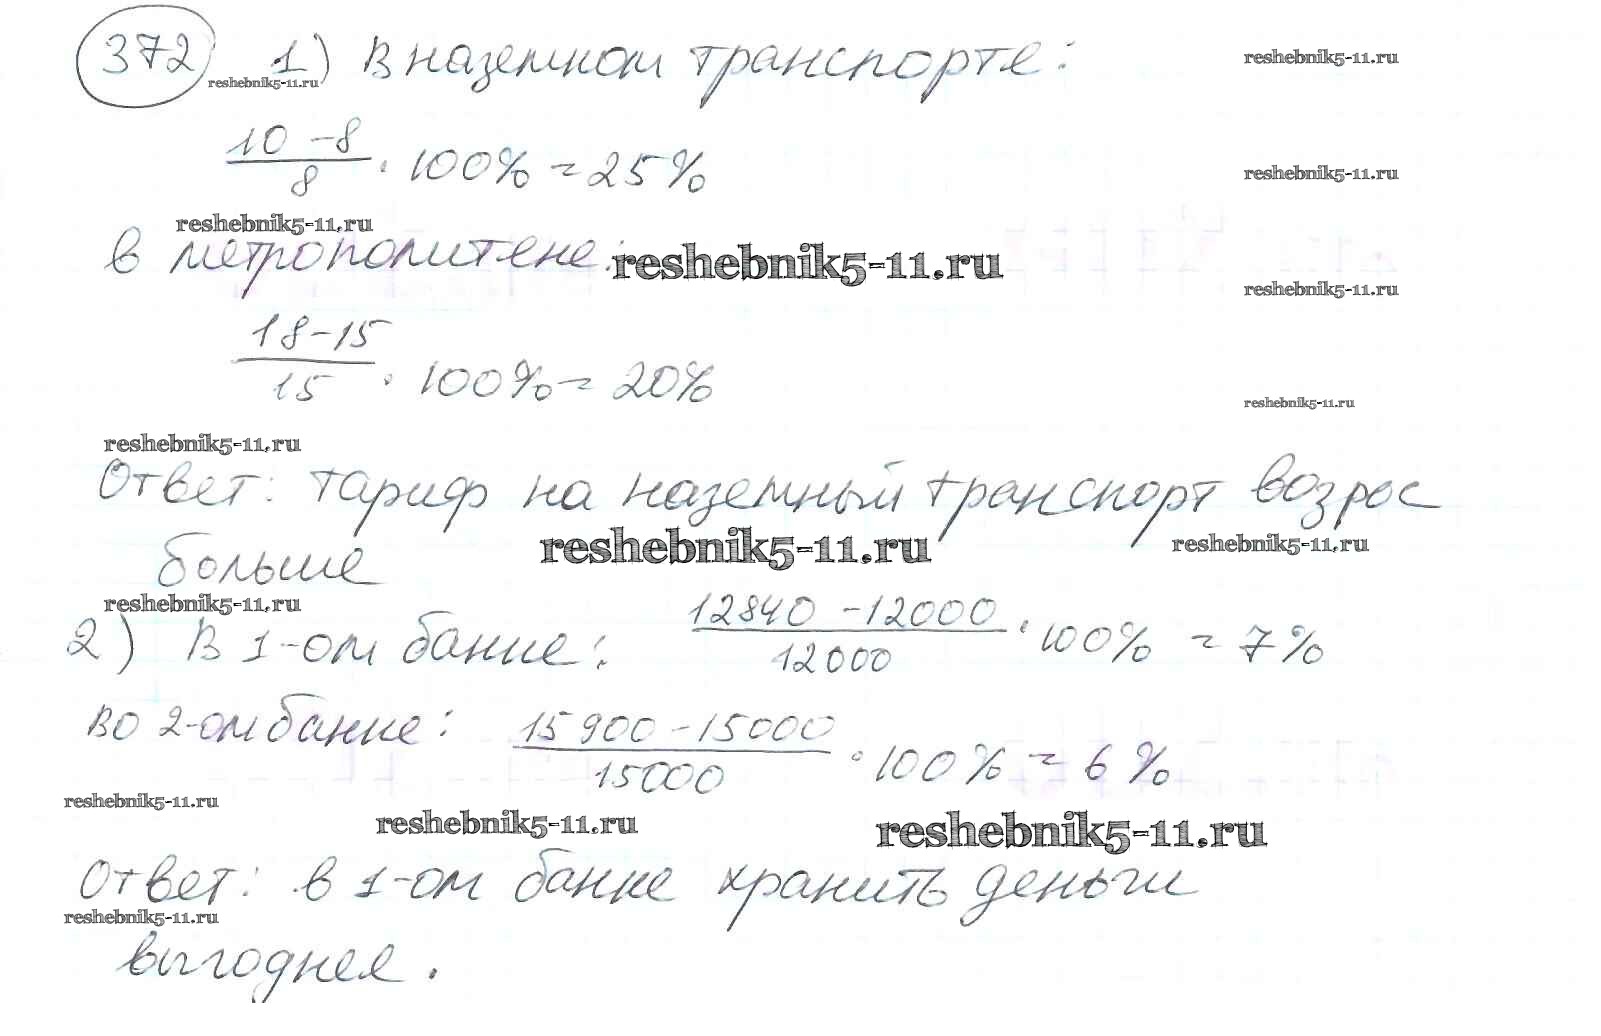 372 1) В наземном транспорте:
reshebnik5-11.ru
reshebnik5-11.ru
10 - 8 / 8 · 100% = 25%
reshebnik5-11.ru
reshebnik5-11.ru
в метрополитене:
reshebnik5-11.ru
reshebnik5-11.ru
18 - 15 / 15 · 100% = 20%
reshebnik5-11.ru
reshebnik5-11.ru
Ответ: тариф на наземный транспорт возрос
больше
reshebnik5-11.ru
reshebnik5-11.ru
reshebnik5-11.ru
2) В 1-ом банке: 12840 - 12000 / 12000 · 100% = 7%
во 2-ом банке: 15900 - 15000 / 15000 · 100% = 6%
reshebnik5-11.ru
reshebnik5-11.ru
reshebnik5-11.ru
Ответ: в 1-ом банке хранить деньги
reshebnik5-11.ru
выгоднее.